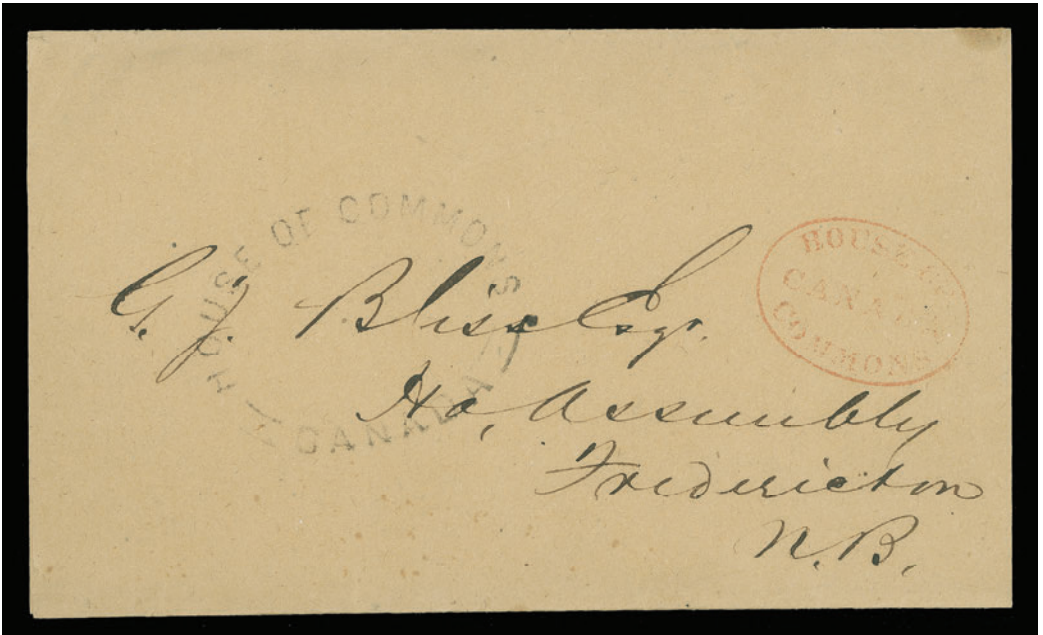 HOUSE OF COMMONS
CANADA
HOUSE OF
CANADA
COMMONS
G. J. Bliss Esqr.
Ho, Assembly
Fredericton
N.B.